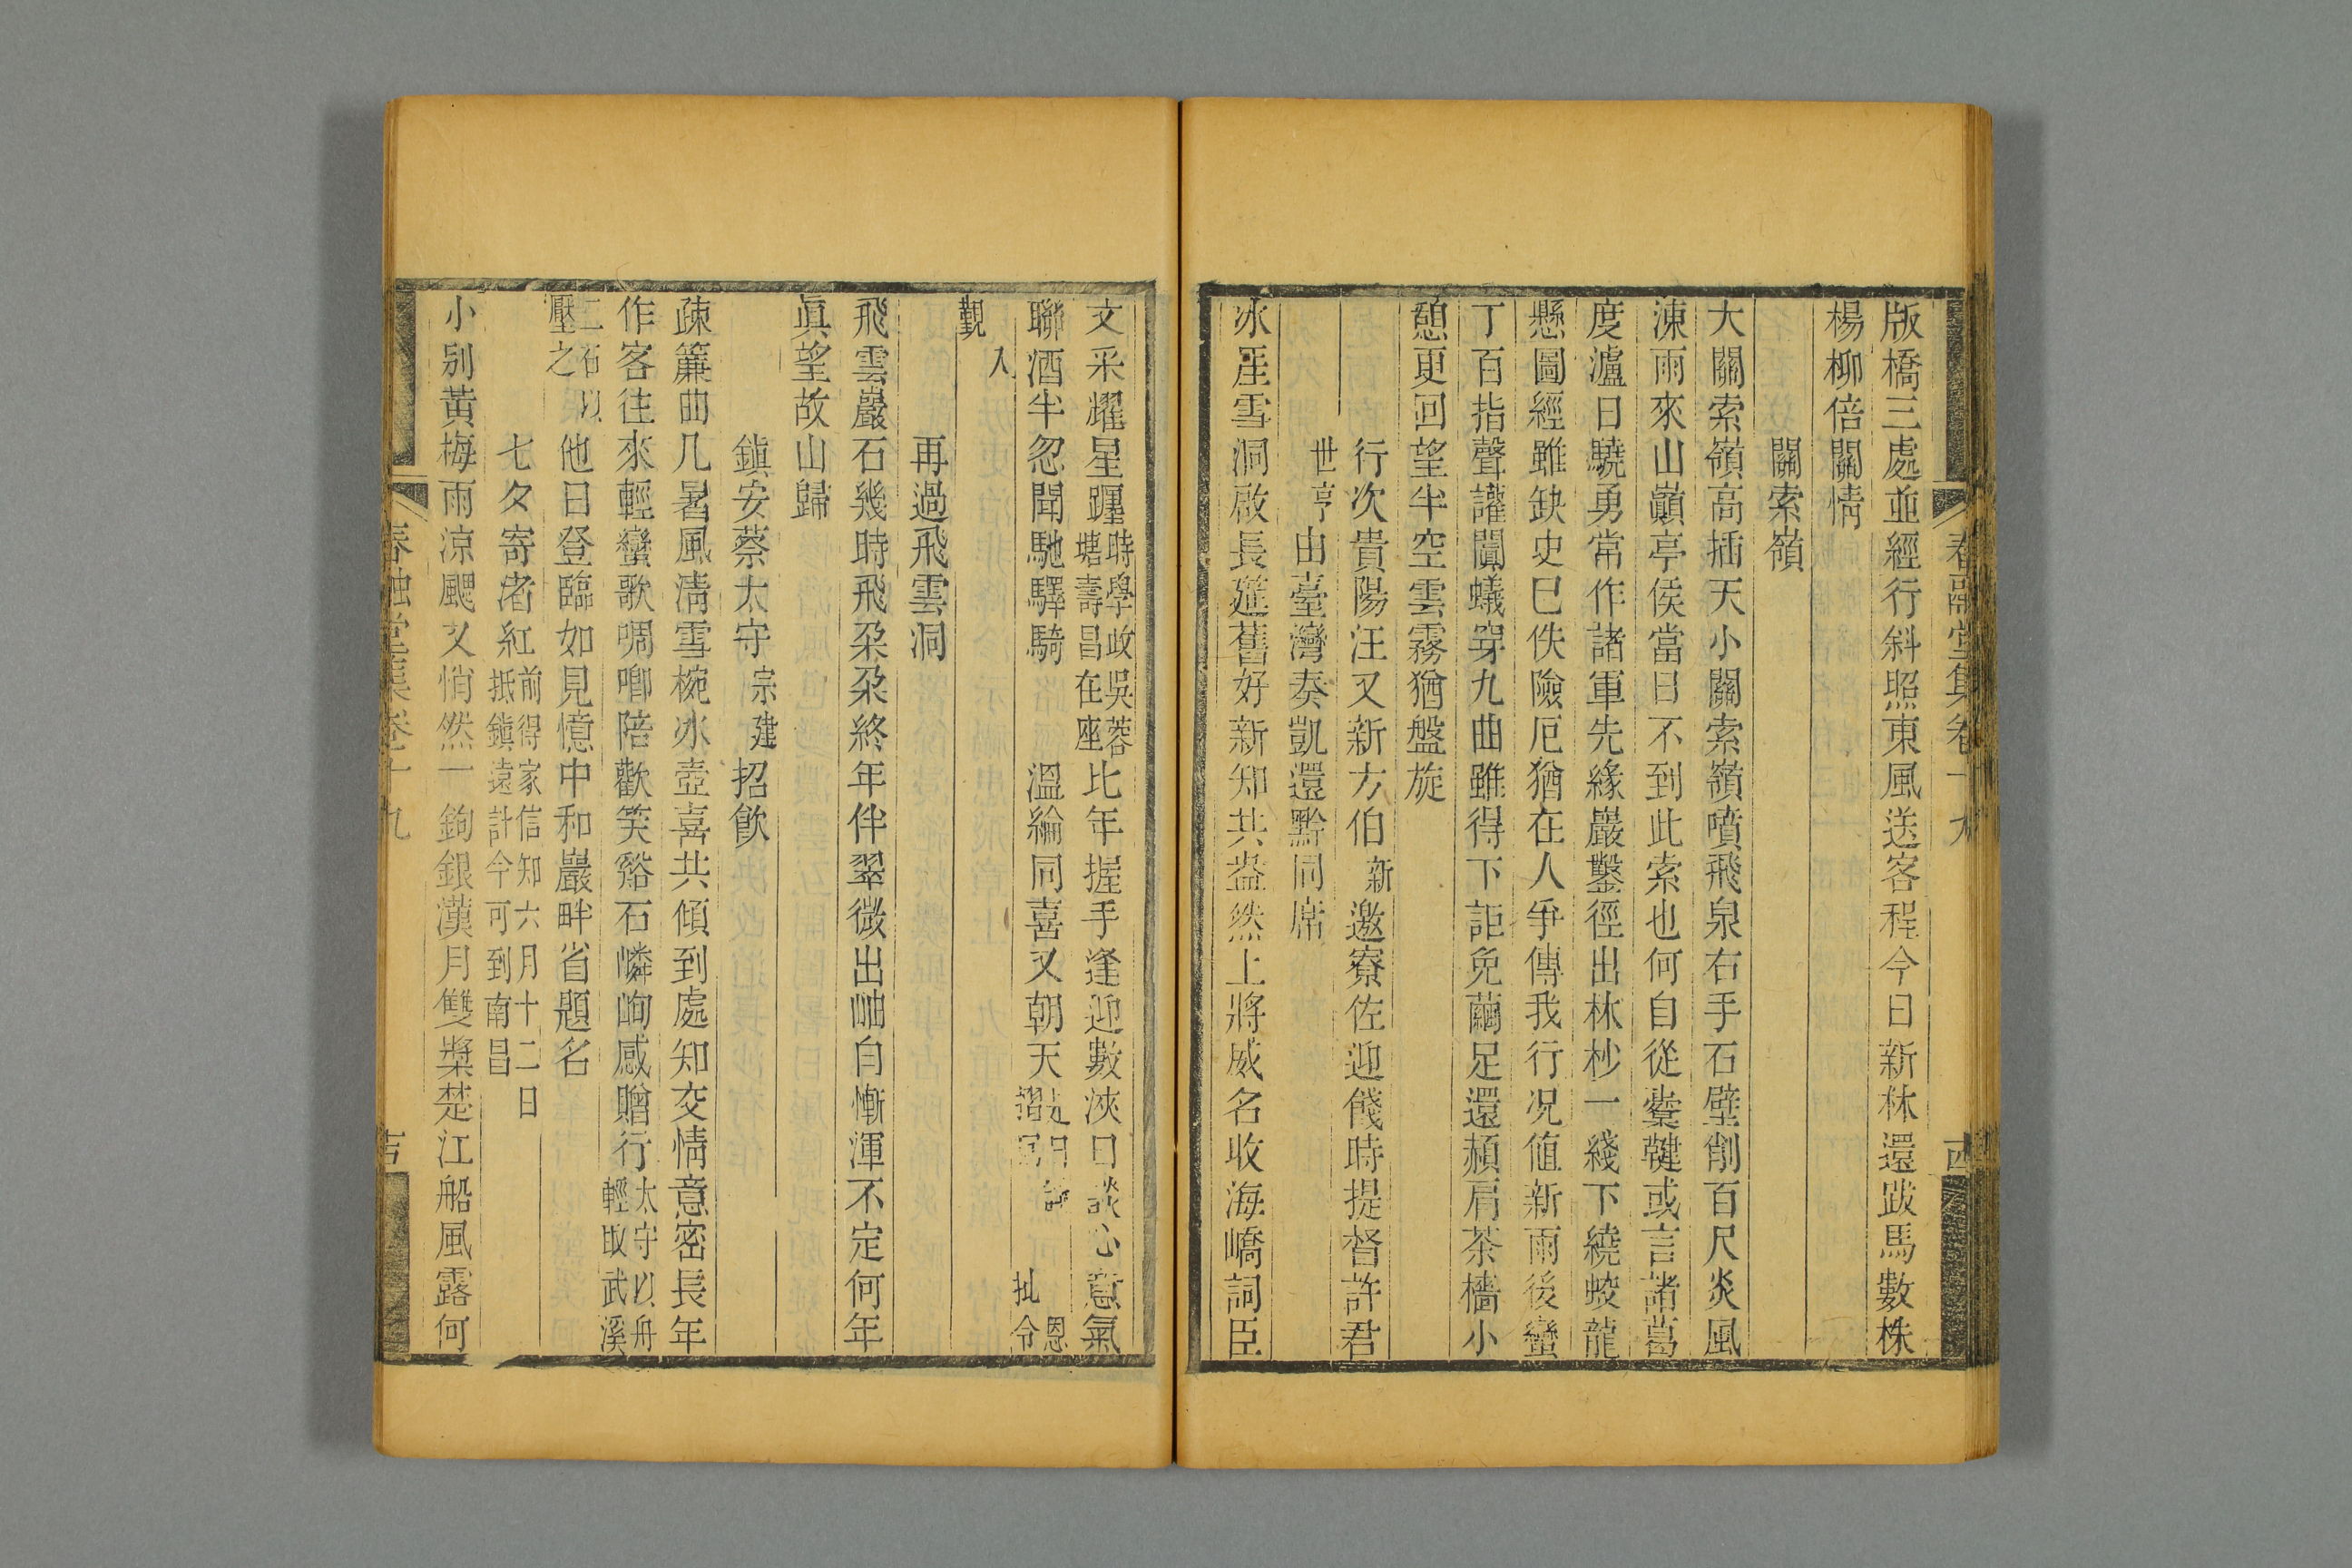 春融堂集卷十九
版橋三處並經行斜照東風送客程今日新林還跋馬數株
楊柳倍關情
關索嶺
大關索嶺高插天小關索嶺噴飛泉右手石壁削百尺炎風
涷雨來山巔亭侯當日不到此索也何自從櫜鞬或言諸葛
度瀘日驍勇常作諸軍先緣巖鑿徑出林杪一綫下繞蛟龍
懸圖經雖缺史已佚險厄猶在人爭傳我行况値新雨後蠻
丁百指聲讙闐蟻穿九曲雖得下詎免繭足還赬肩茶檣小
憩更回望半空雲霧猶盤旋
行次貴陽汪又新方伯新邀寮佐迎餞時提督許君
世亨由臺灣奏凱還黔同席
冰厓雪洞啟長莚舊好新知共盎然上將威名收海嶠詞臣
文采耀星躔時學政吳蓉塘壽昌在座比年握手逢迎數浹日談心意氣
聯酒半忽聞馳驛騎溫綸同喜又朝天恩批令
入
覲
再過飛雲洞
飛雲巖石幾時飛朶朶終年伴翠微出岫自慚渾不定何年
眞望故山歸
鎭安蔡太守宗建招飮
疎簾曲几暑風淸雪椀冰壺喜共傾到處知交情意密長年
作客往來輕蠻歌啁哳陪歡笑谿石嶙峋感贈行太守以舟輕取武溪
二石以壓之他日登臨如見憶中和巖畔省題名
七夕寄渚紅前得家信知六月十二日抵鎭遠計今可到南昌
小別黃梅雨涼颸又悄然一鉤銀漢月雙槳楚江船風露何
春融堂集卷十九